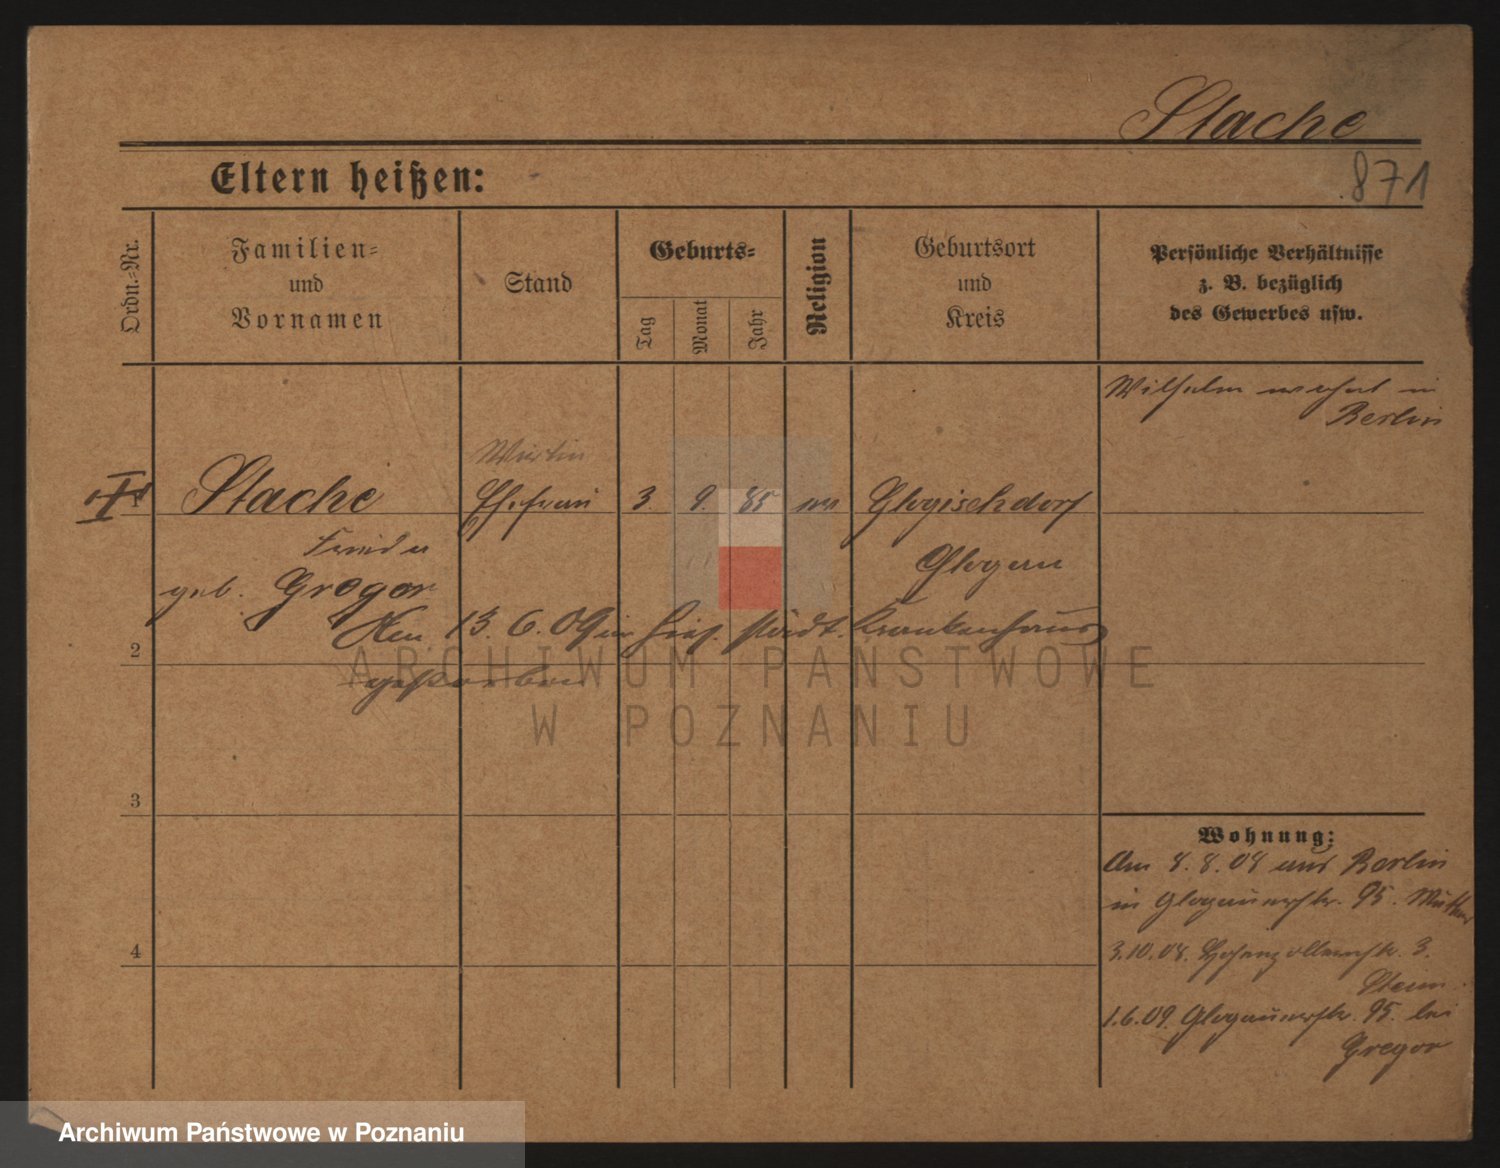 Stache
871
Eltern heißen:
Ordn.-Nr.
Familien-
und
Vornamen
Stand
Geburts-
Tag
Monat
Jahr
Religion
Geburtsort
und
Kreis
Persönliche Verhältnisse
z. B. bezüglich
des Gewerbes usw.
Wilhelm wohnt in
Berlin
1
Stache
Ehefrau
3. 9. 85
Glogischdorf
Frieda
Glogau
geb. Gregor
Am 13. 6. 09 im hies. städt. Krankenhaus
gestorben
2
3
4
Wohnung:
Am 8.8.08 aus Berlin
in Glogauerstr. 95. Mutter
3.10.08. Hohenzollernstr. 3.
1.6.09. Glogauerstr. 95. bei
Gregor
ARCHIWUM PAŃSTWOWE
W POZNANIU
Archiwum Państwowe w Poznaniu